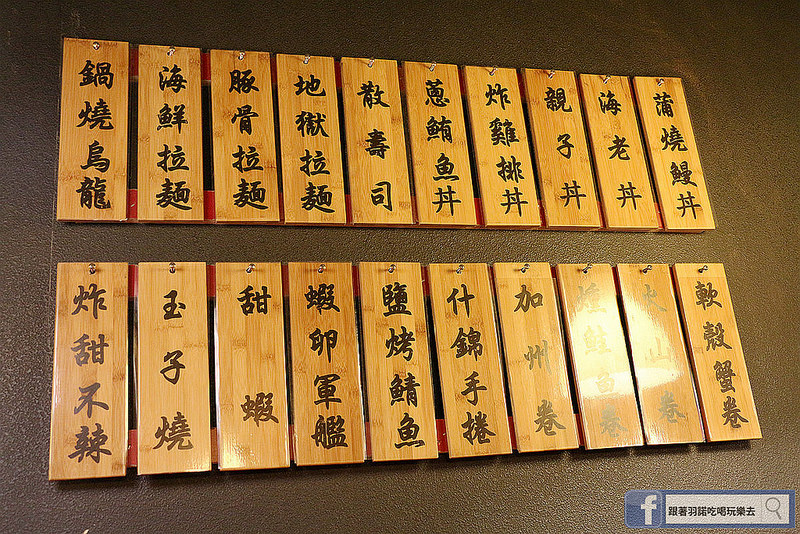 蒲燒鰻丼
海老丼
親子丼
炸雞排丼
蔥鮪魚丼
散壽司
地獄拉麵
豚骨拉麵
海鮮拉麵
鍋燒烏龍
軟殼蟹卷
火山卷
燻鮭魚卷
加州卷
什錦手捲
鹽烤鯖魚
蝦卵軍艦
甜蝦
玉子燒
炸甜不辣
f 跟著羽諾吃喝玩樂去